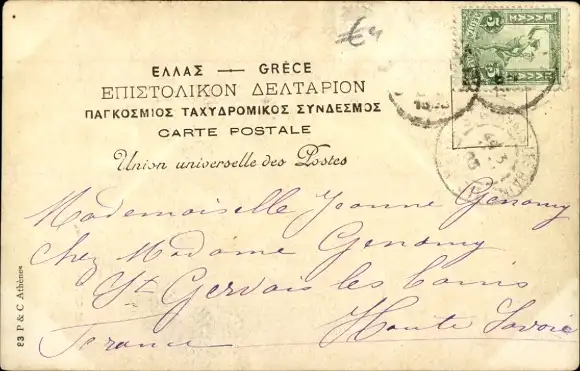 £4
ΕΛΛΑΣ
5
5
ΕΛΛΑΣ — GRÈCE
ΕΠΙΣΤΟΛΙΚΟΝ ΔΕΛΤΑΡΙΟΝ
ΠΑΓΚΟΣΜΙΟΣ ΤΑΧΥΔΡΟΜΙΚΟΣ ΣΥΝΔΕΣΜΟΣ
CARTE POSTALE
Union universelle des Postes
Mademoiselle Jeanne Genamy
chez Madame Genamy
St Gervais les bains
Haute Savoie
France
83 P & C Athènes